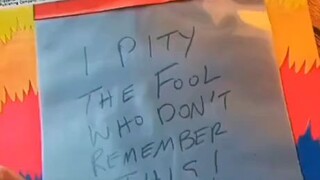 I PITY
THE FOOL
WHO DON'T
REMEMBER
THIS!